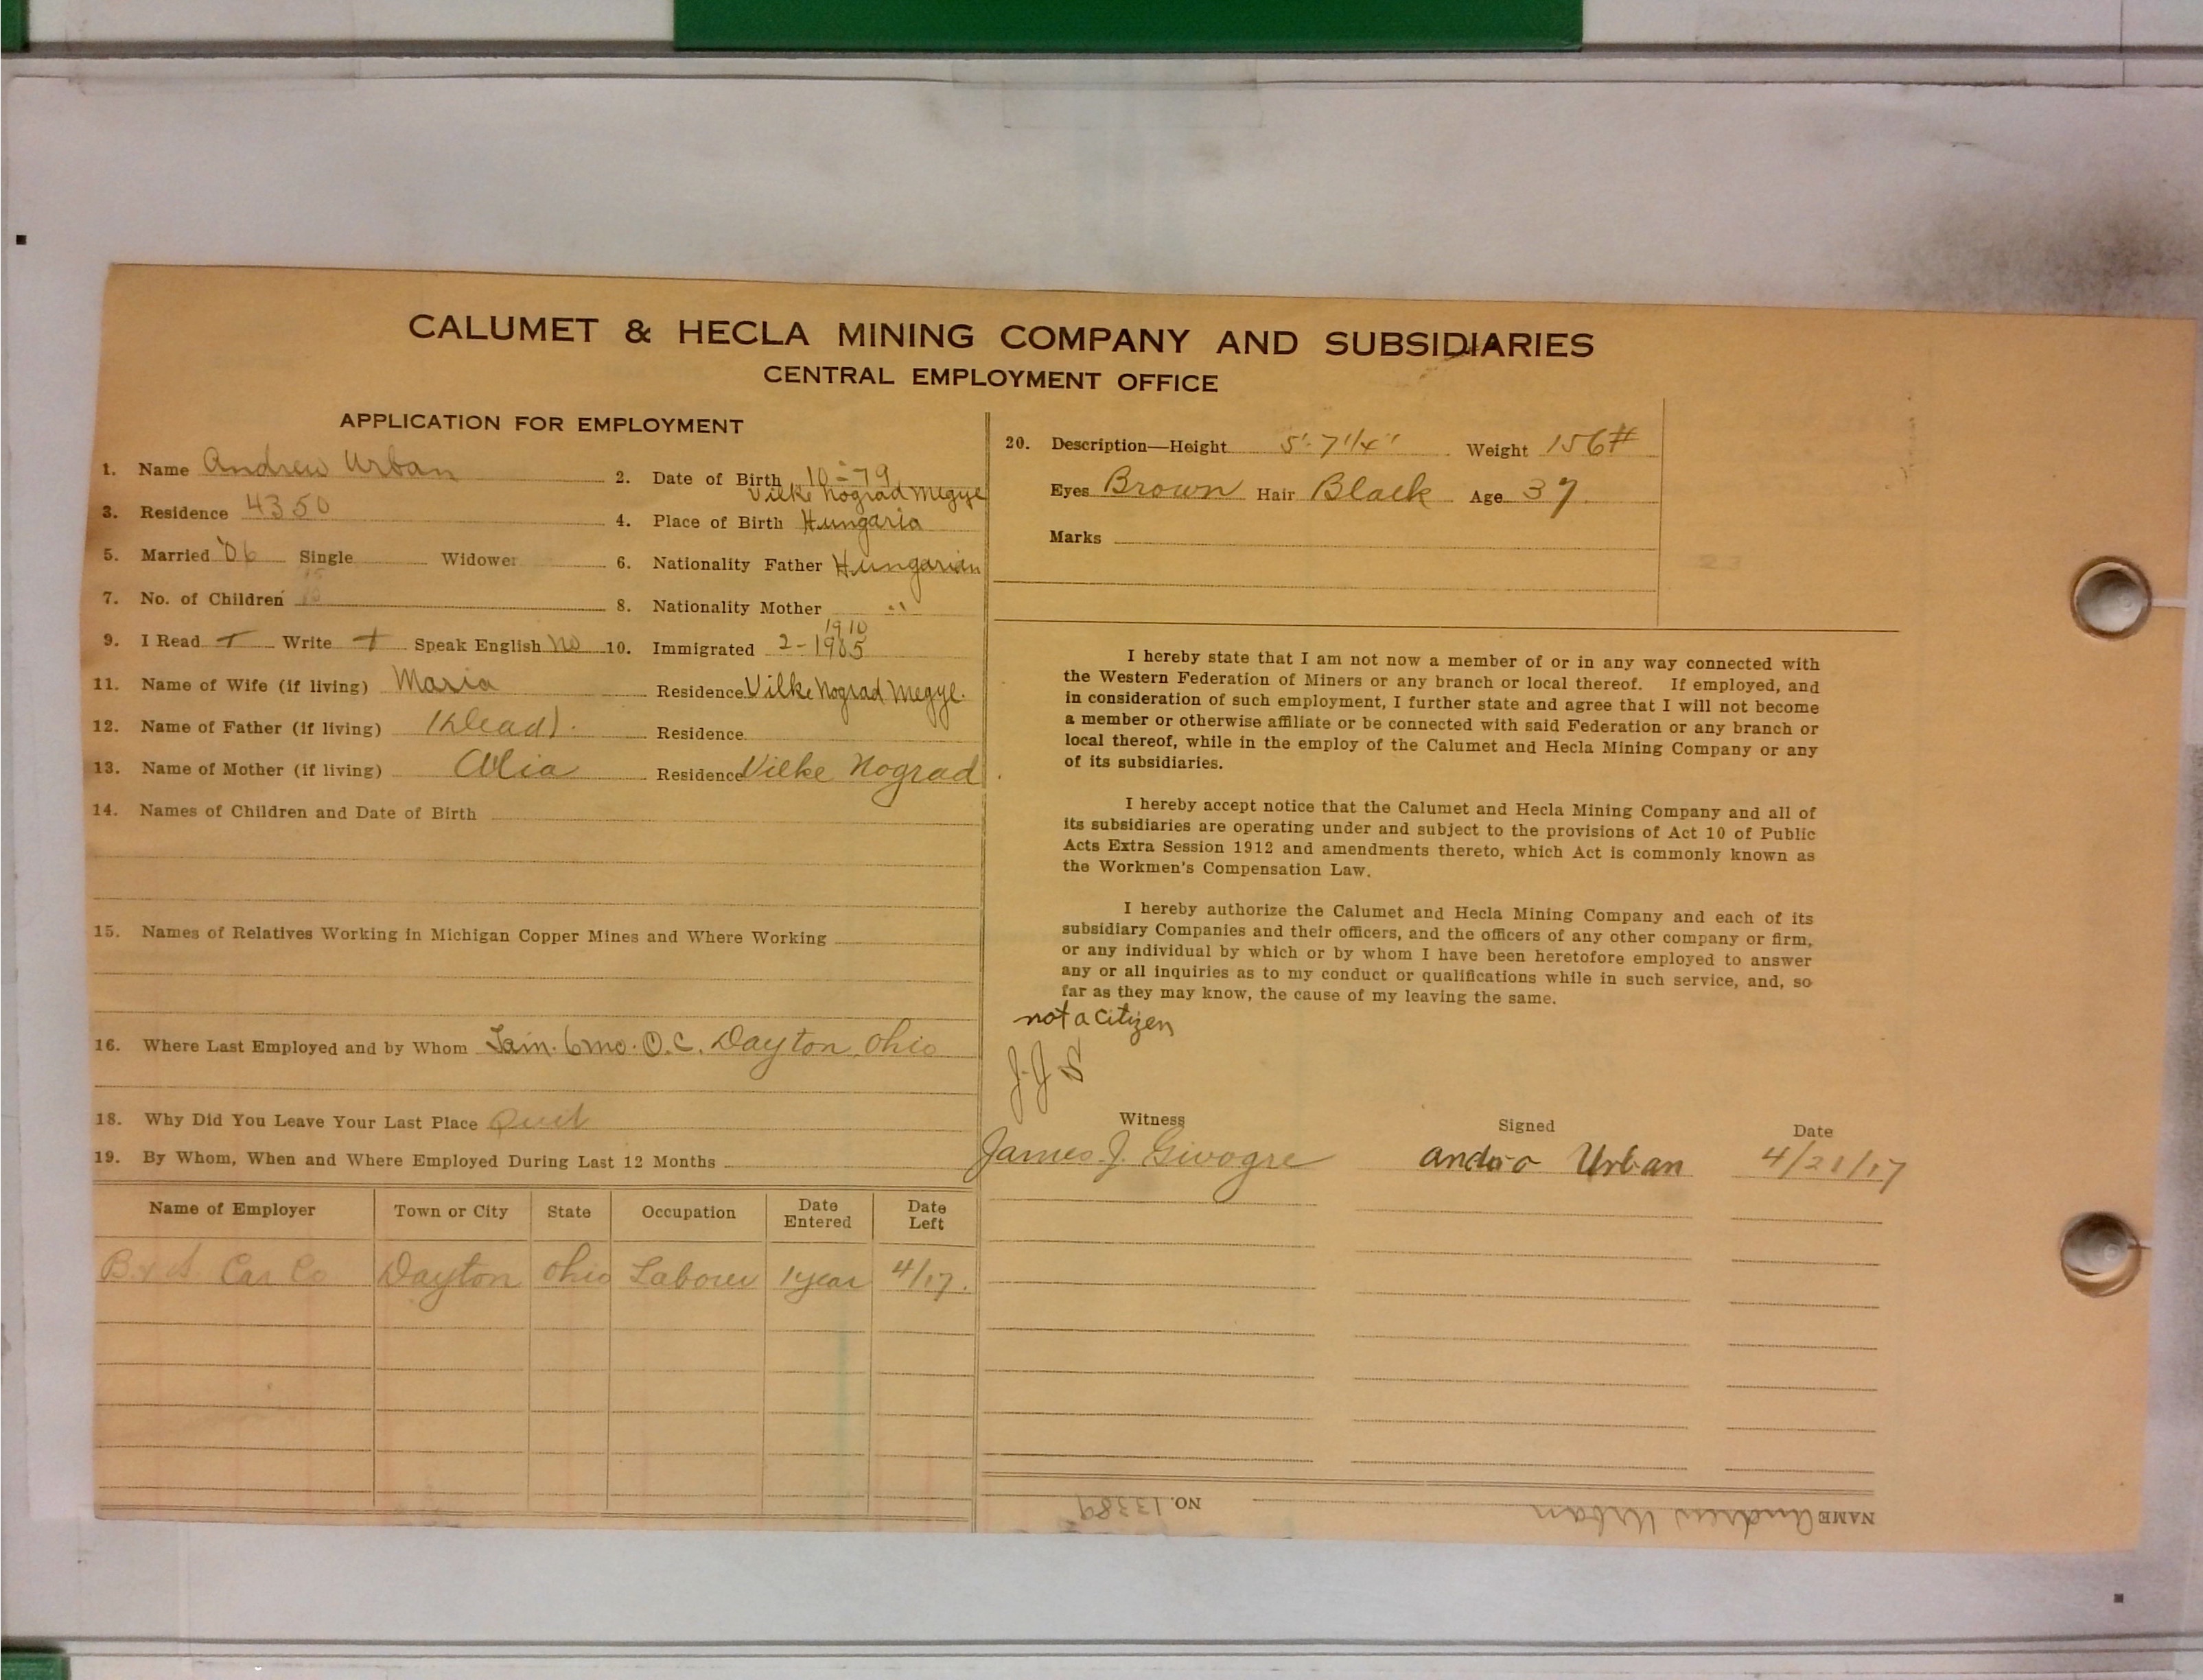 CALUMET & HECLA MINING COMPANY AND SUBSIDIARIES
CENTRAL EMPLOYMENT OFFICE
APPLICATION FOR EMPLOYMENT
1. Name Andrew Urban 2. Date of Birth 10 - 79
Vilke Nograd Megye
3. Residence 4350 4. Place of Birth Hungaria
5. Married '06 Single Widower 6. Nationality Father Hungarian
7. No. of Children 8. Nationality Mother "
1910
9. I Read + Write + Speak English No 10. Immigrated 2-1905
11. Name of Wife (if living) Maria Residence Vilke Nograd Megye.
12. Name of Father (if living) (Dead). Residence
13. Name of Mother (if living) Residence Vilke Nograd
14. Names of Children and Date of Birth
15. Names of Relatives Working in Michigan Copper Mines and Where Working
16. Where Last Employed and by Whom 6 mo. O.C. Dayton, Ohio
18. Why Did You Leave Your Last Place Quit
19. By Whom, When and Where Employed During Last 12 Months
Name of Employer Town or City State Occupation Date Entered Date Left
Car Co Dayton Ohio Laborer 1 year 4/17.
20. Description—Height 5'-7 1/4" Weight 156#
Eyes Brown Hair Black Age 37
Marks
I hereby state that I am not now a member of or in any way connected with
the Western Federation of Miners or any branch or local thereof. If employed, and
in consideration of such employment, I further state and agree that I will not become
a member or otherwise affiliate or be connected with said Federation or any branch or
local thereof, while in the employ of the Calumet and Hecla Mining Company or any
of its subsidiaries.
I hereby accept notice that the Calumet and Hecla Mining Company and all of
its subsidiaries are operating under and subject to the provisions of Act 10 of Public
Acts Extra Session 1912 and amendments thereto, which Act is commonly known as
the Workmen's Compensation Law.
I hereby authorize the Calumet and Hecla Mining Company and each of its
subsidiary Companies and their officers, and the officers of any other company or firm,
or any individual by which or by whom I have been heretofore employed to answer
any or all inquiries as to my conduct or qualifications while in such service, and, so
far as they may know, the cause of my leaving the same.
not a citizen
J.J.S
Witness Signed Date
James J. Urban 4/21/17
NAME Andrew Urban NO. 13389